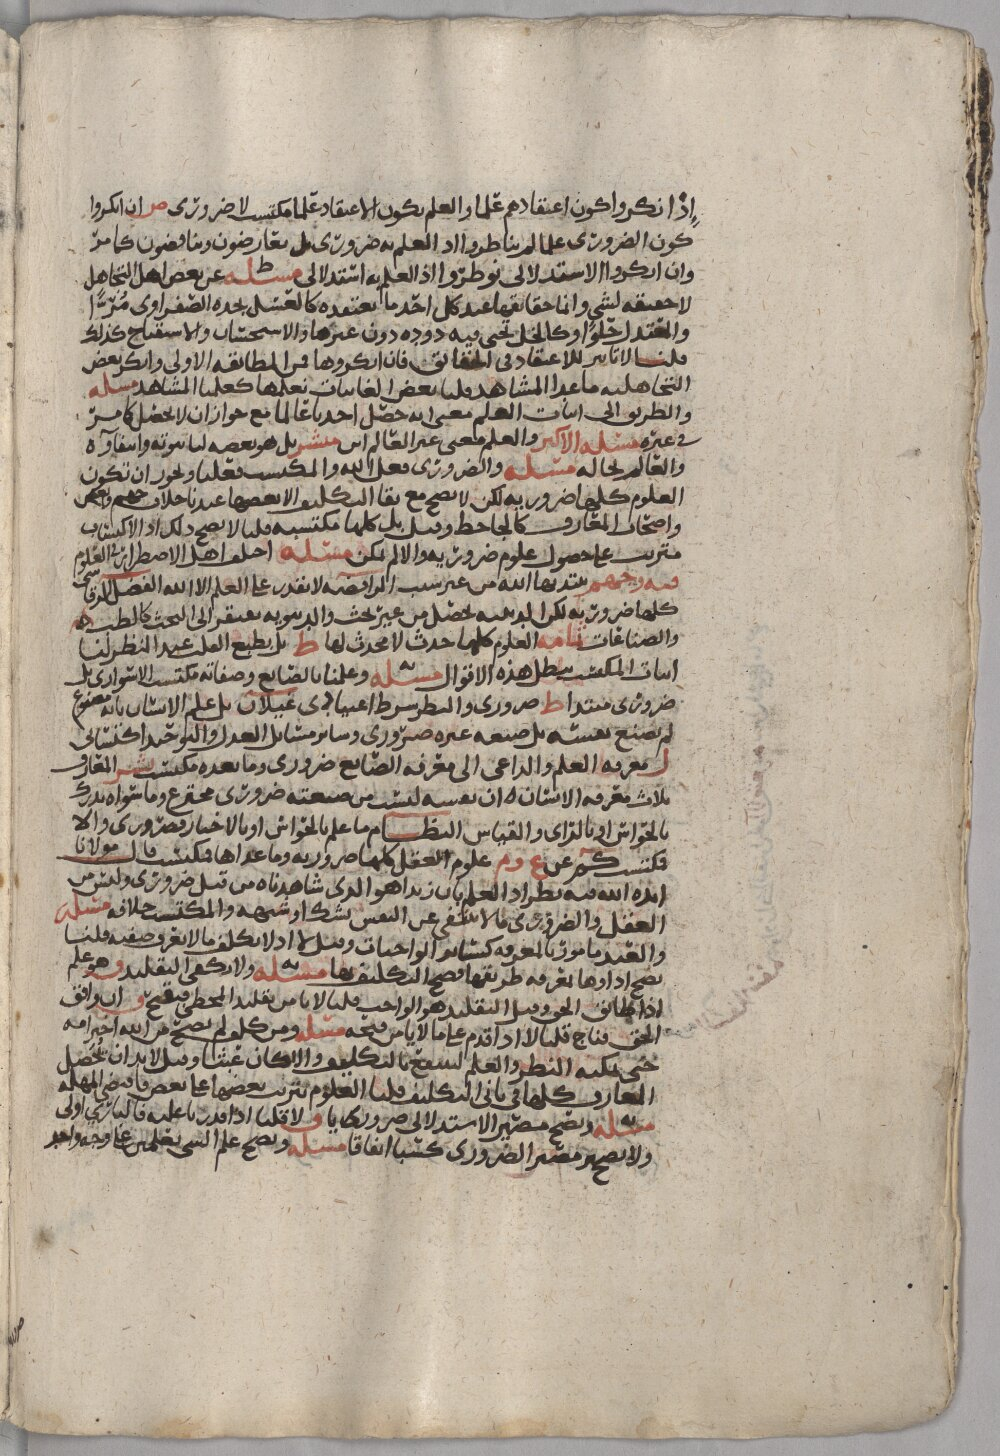 إذا نكروا كون اعتقادهم علما والعلم بكون الاعتقاد علما مكتسب لا ضروري ص ان انكروا
كون الضروري علما لم يناظروا اذ العلم به ضروري بل يعارضون ويناقضون كما مر
وان انكروا الاستدلالي نوظروا اذ العلم به استدلالي مسئله عن بعض اهل التجاهل
لا حقيقه لشي وانما حقايقها عند كل احد ما يعتقده كالعسل يجده الصفراوي مرا
والمعتدل حلوا وكالخل تحيي فيه دوده دون غيرها والاستحسان والاستقباح كذلك
قلنا لا تاثير للاعتقاد في الحقائق فان انكروها فمن الطائفه الاولى وانكر بعض
التجاهليه ما عدا المشاهد قلنا بعض الغائبات نعلمها كعلمنا المشاهد مسئله
والطريق الى اثبات العلم معنى انه حصل احدنا عالما مع جواز ان لا يحصل كما مر
في غيره مسئله الاكثر والعلم معنى غير العالم ابن مبشر بل هو بعضه لنا ثبوته وانتفاؤه
والعالم بحاله مسئله والضروري فعل الله والمكتسب فعلنا ويجوز ان تكون
العلوم كلها ضروريه لكن لا يصح مع بقا التكليف الا بعضها عندنا خلاف جهم وبعض
واصحاب المعارف كالجاحظ وقيل بل كلها مكتسبه قلنا لا يصح ذلك اذ الاكتساب
مترتب على حصول علوم ضروريه والا لم يكن مسئله اختلف اهل الاضطرار في العلوم
فيه وجهم يبتديها الله من غير سبب الرافضه لا نقدر على العلم الا الله الفضل الرقاشي
كلها ضروريه لكن الدينيه تحصل من غير بحث والدنيويه يفتقر الى البحث كالطب
والصناعات ثمامه العلوم كلها حدث لا محدث لها ط بل بطبع المحل عند النظر لنا
اثبات المكتسب يبطل هذه الاقوال مسئله وعلمنا بالصانع وصفاته مكتسب الاسواري بل
ضروري مبتدا ط ضروري والنظر شرط اعتبادي غيلان بل علم الانسان بانه مصنوع
لم يصنع نفسه بل صنعه غيره ضروري وسائر مسائل العدل والتوحيد اكتسابي
ل معرفه العلم والداعي الى معرفه الصانع ضروري وما بعده مكتسب بشر المعارف
ثلاث معرفه الانسان ان نفسه ليست من صنعته ضروري مخترع وما سواه يدرك
بالحواس او بالراي والقياس النظام ما علم بالحواس او بالاخبار فضروري والا
فمكتسب كم عن ع وم علوم العقل كلها ضروريه وما عداها مكتسب قال مولانا
ايده الله فيه نظر اذ العلم بان زيدا هو الذي شاهدناه من قبل ضروري وليس من
العقل والضروري ما لا ينتفي عن النفس بشك او شبهه والمكتسب خلافه مسئله
والعبد مامور بالمعرفه كسائر الواجبات وقيل لا اذ لا يكلف ما لا يعرف صفته قلنا
يصح اذ اذا ما يعرفه طريقها فصح التكليف بها مسئله ولا يكفي التقليد ق هو علم
اذا طابق الحق وقيل التقليد هو الواجب قلنا لا يامن تقليد المخطي فيقبح ق ان وافق
الحق فناج قلنا لا اذ اقدم على ما لا يامن قبحه مسئله ومن كلف لم يصح من الله اخترامه
حتى يمكنه النظر والعلم لينتفع بالتكليف والا كان عبثا وقيل لا بد ان تحصل
المعارف كلها في ثاني التكليف قلنا العلوم يترتب بعضها على بعض فاقتضى المهله
مسئله ويصح مصير الاستدلالي ضروريا ق لا قلنا اذا قدرنا عليه فالباري اولى
ولا يصح مصير الضروري كسبا اتفاقا مسئله ويصح علم الشي بعلمين على وجه واحد